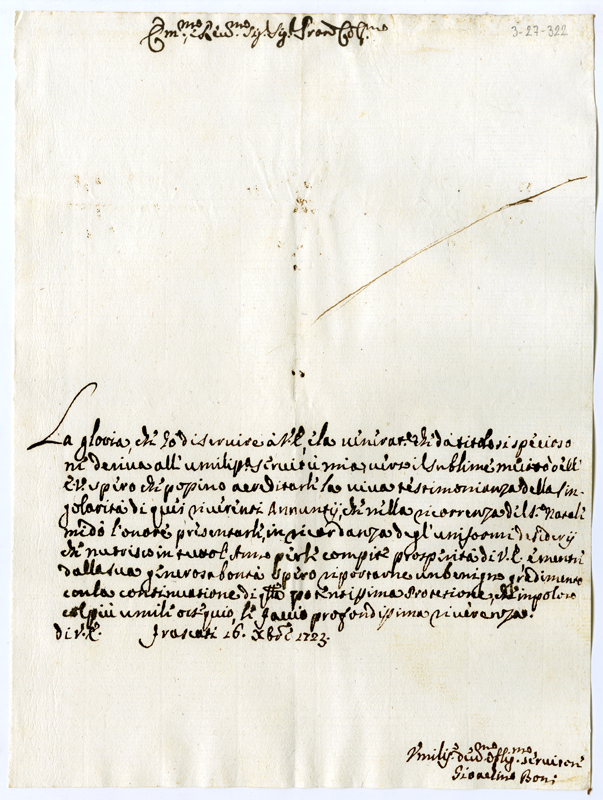 Em.mo, e Reu.mo Sig. Sig. Pron Col.mo
3-27-322
La gloria, che hò di seruire à V.E., e la venerat.e che da titolo sì specioso
ne deriua all' umiliss.a seruitù mia uerso il sublime merito dell'
E.V. spero che possino accreditarle la uiua testimonianza della sin-
golarità di questi riuerenti Annuntij, che nella ricorrenza del S.to Natale
mi dò l'onore presentarle, in ricordanza degl'uniformi desiderij
che nutrisco in tutto l'Anno per le compite prosperità di V.E. e mentre
dalla sua generosa bontà spero riportarne un benigno gradimento
con la continuatione di potentissima Protetione, che imploro
col più umile ossequio, le faccio profondissima riuerenza.
di V.E. Frascati 16. Xbre 1723.
Vmiliss.o diu.mo oblig.mo seruitore
Boni